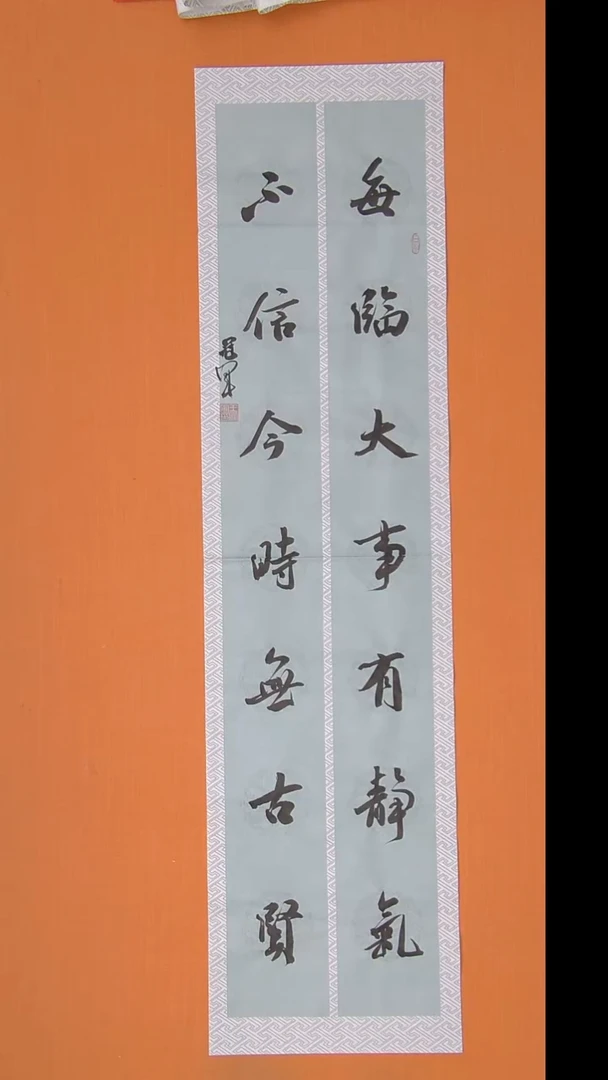 每臨大事有靜氣
不信今時無古賢
冠軍